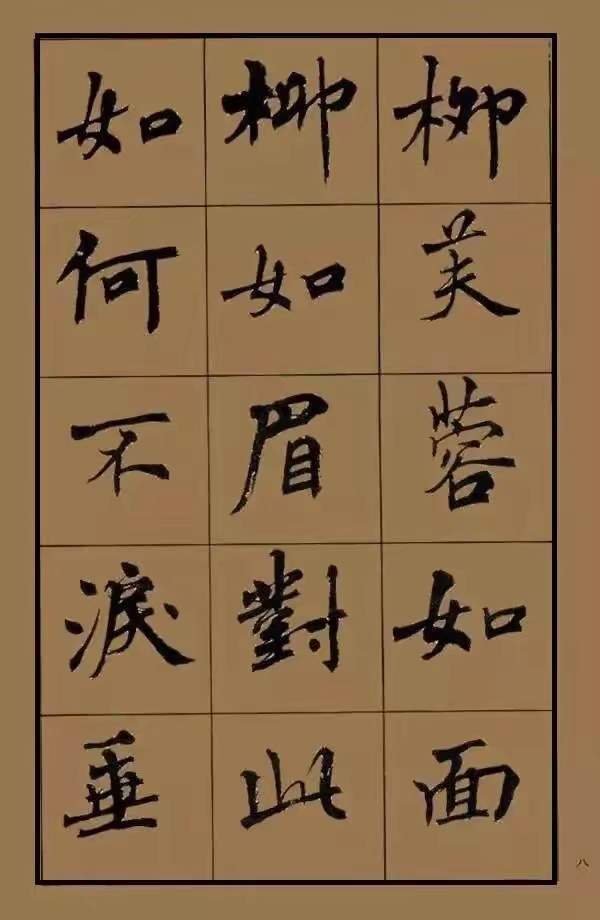 柳芙蓉如面
柳如眉對此
如何不淚垂
八